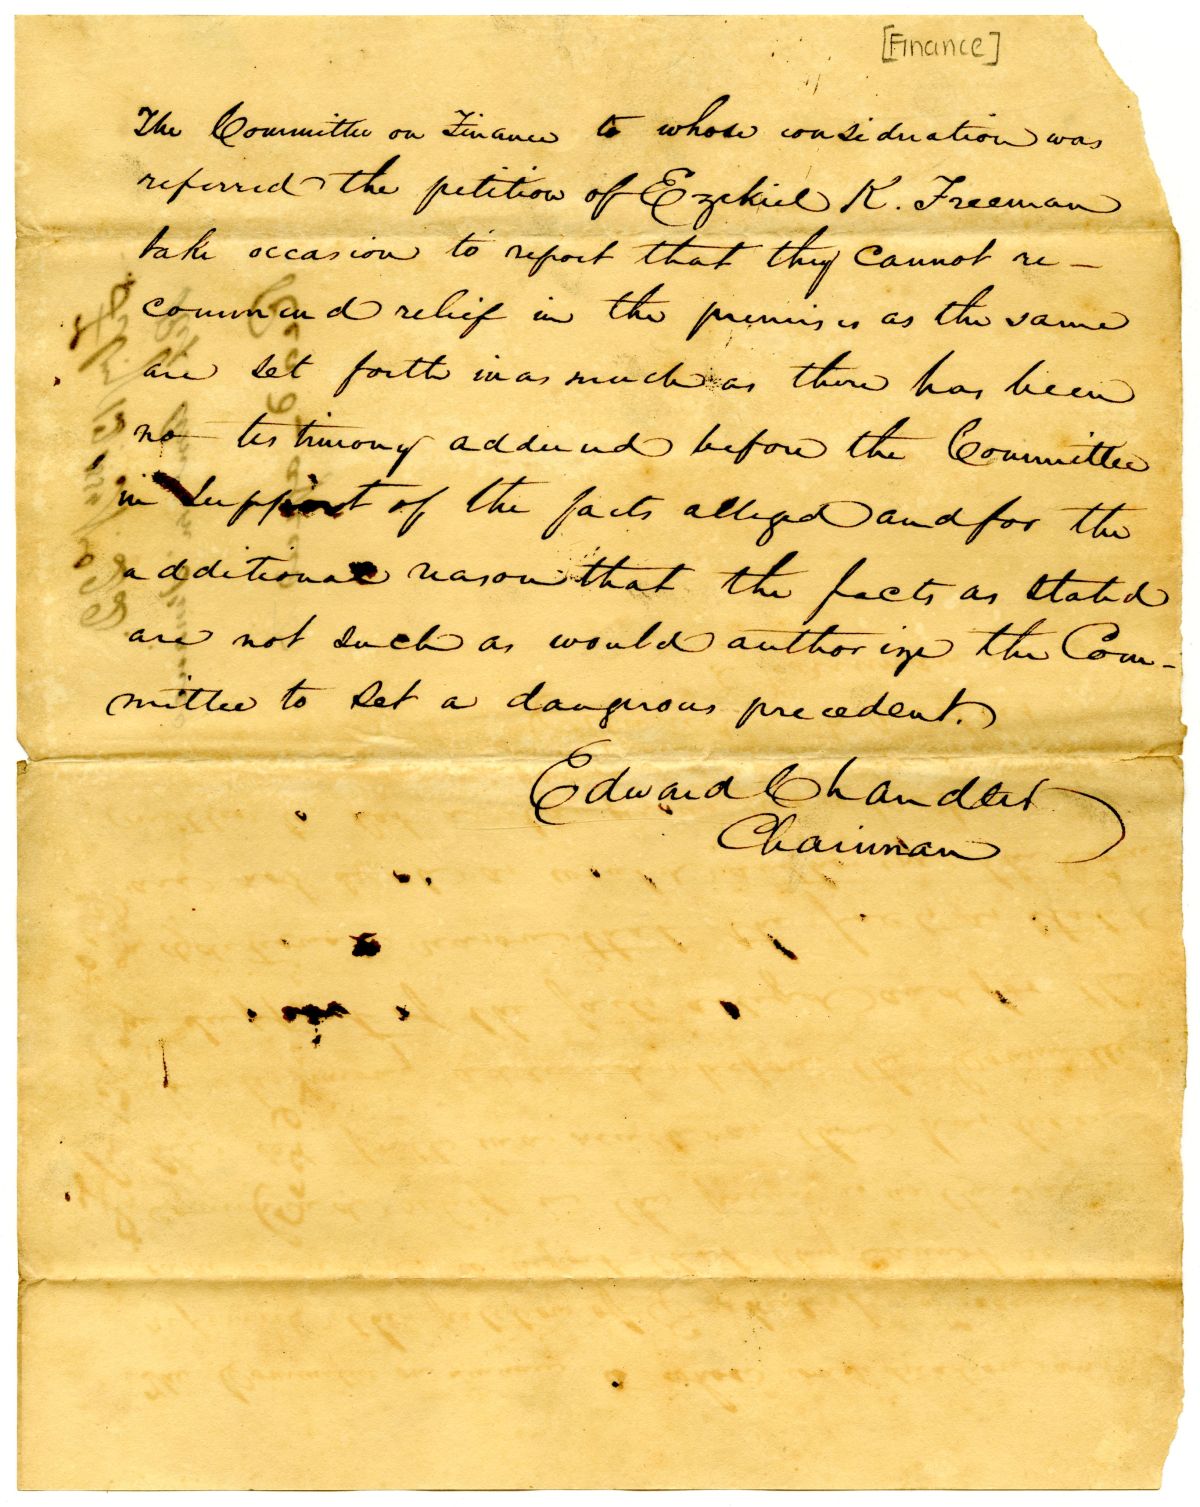 [Finance]
The Committee on Finance to whose consideration was
referred the petition of Ezekiel K. Freeman
take occasion to report that they cannot re-
commend relief in the premises as the same
are set forth in as much as there has been
no testimony adduced before the Committee
in support of the facts alleged and for the
additional reason that the facts as stated
are not such as would authorize the Com-
mittee to set a dangerous precedent.
Edward Chandler
Chairman